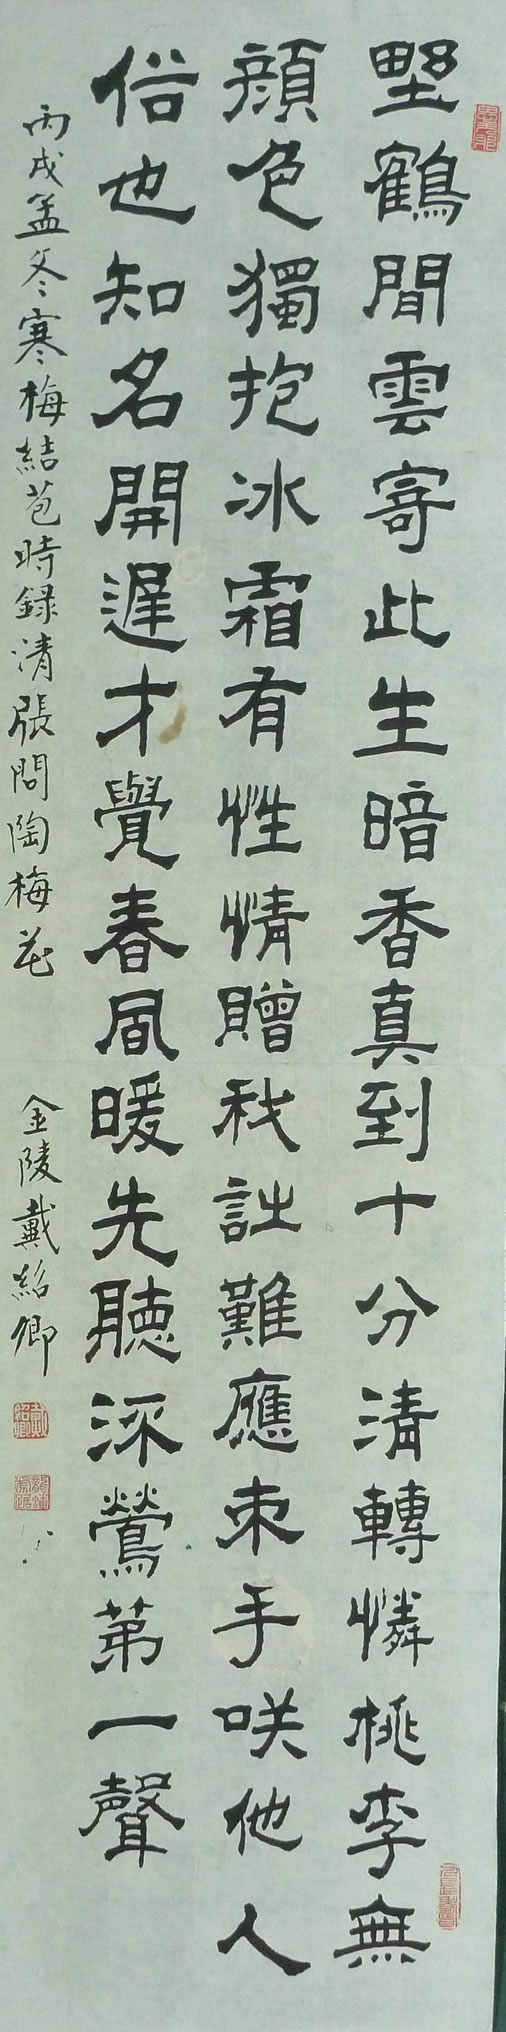 野鶴閒雲寄此生暗香真到十分清轉憐桃李無
顏色獨抱冰霜有性情贈我詎難應束手咲他人
俗也知名開遲才覺春風暖先聽流鶯第一聲
丙戌孟冬寒梅結苞時錄清張問陶梅花
金陵戴紹卿